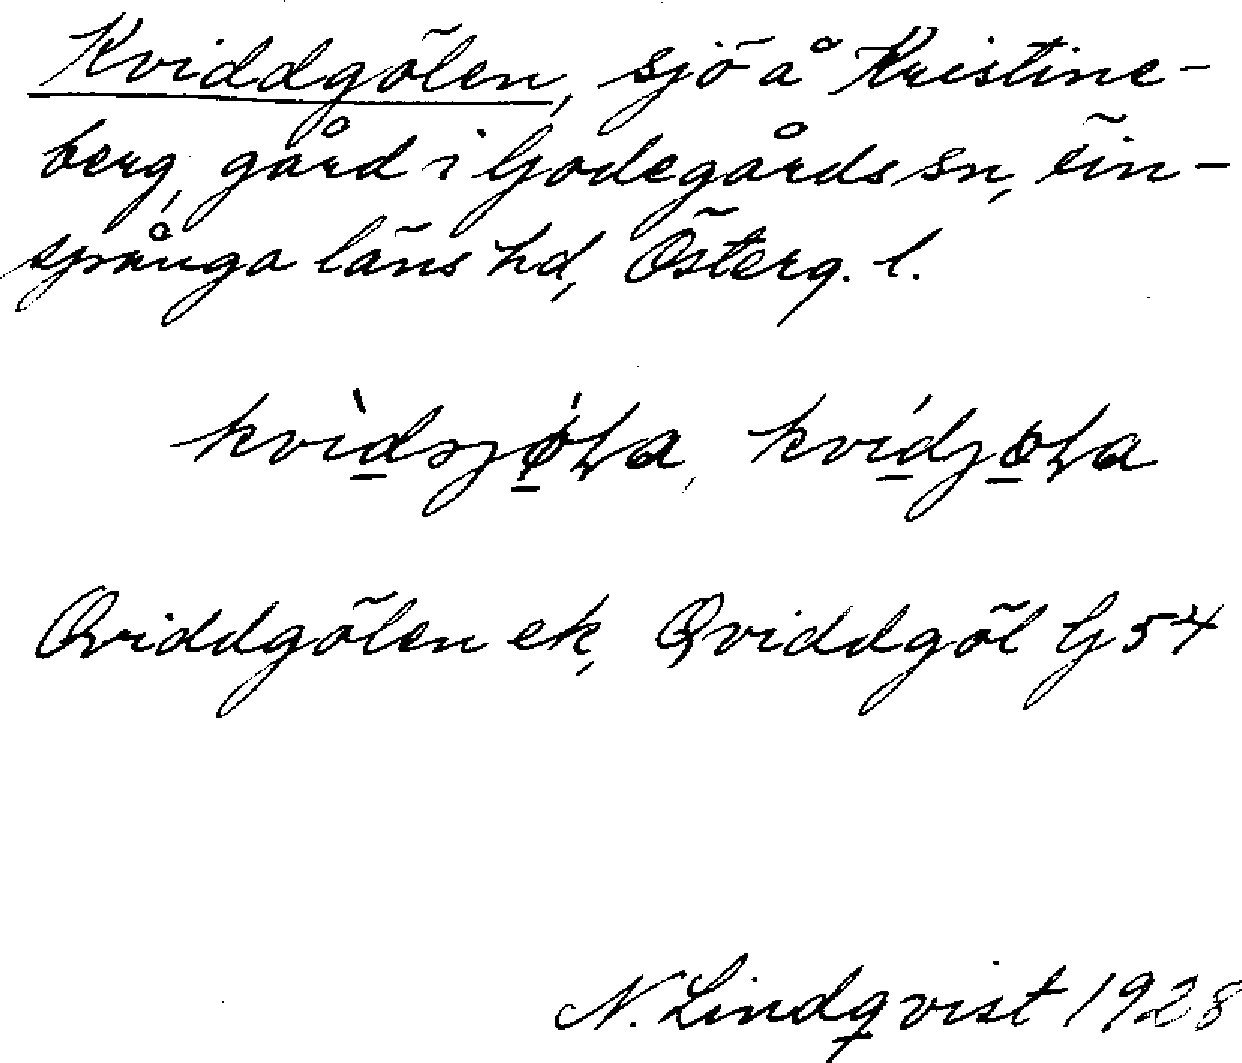 Kviddgölen, sjö å Kristine-
berg, gård i Godegårds sn, Fin-
spånga läns hd, Österg. l.
Qviddgölen ek, Qviddgöl G 54
N. Lindqvist 1928